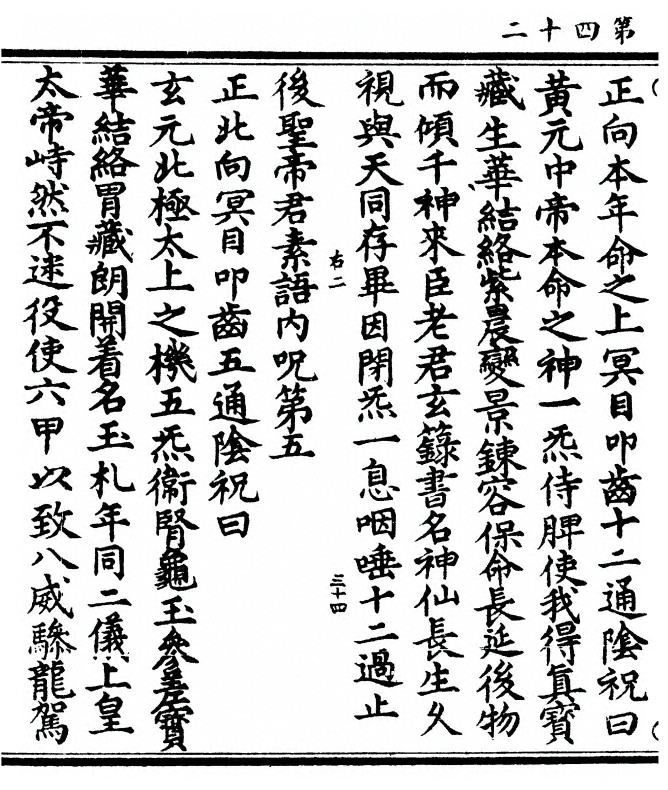 第四十二
正向本年命之上冥目叩齒十二通隂祝曰
黃元中帝本命之神一炁侍脾使我得真寳
藏生華結絡紫晨變景錬容保命長延後物
而傾千神來臣老君玄籙書名神仙長生久
視與天同存畢因閉炁一息咽唾十二過止
右二
三十四
後聖帝君素語内呪第五
正北向冥目叩齒五通隂祝曰
玄元北極太上之機五炁衛腎龜玉參差寳
華結絡胃藏朗開着名玉札年同二儀上皇
太帝峙然不迷役使六甲以致八威驂龍駕